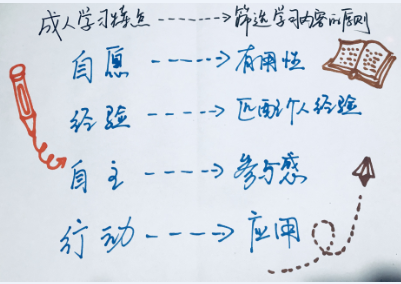 成人学习特点------->筛选学习内容的原则
自愿----->有用性
经验----->匹配个人经验
自主----->参与感
行动---->应用